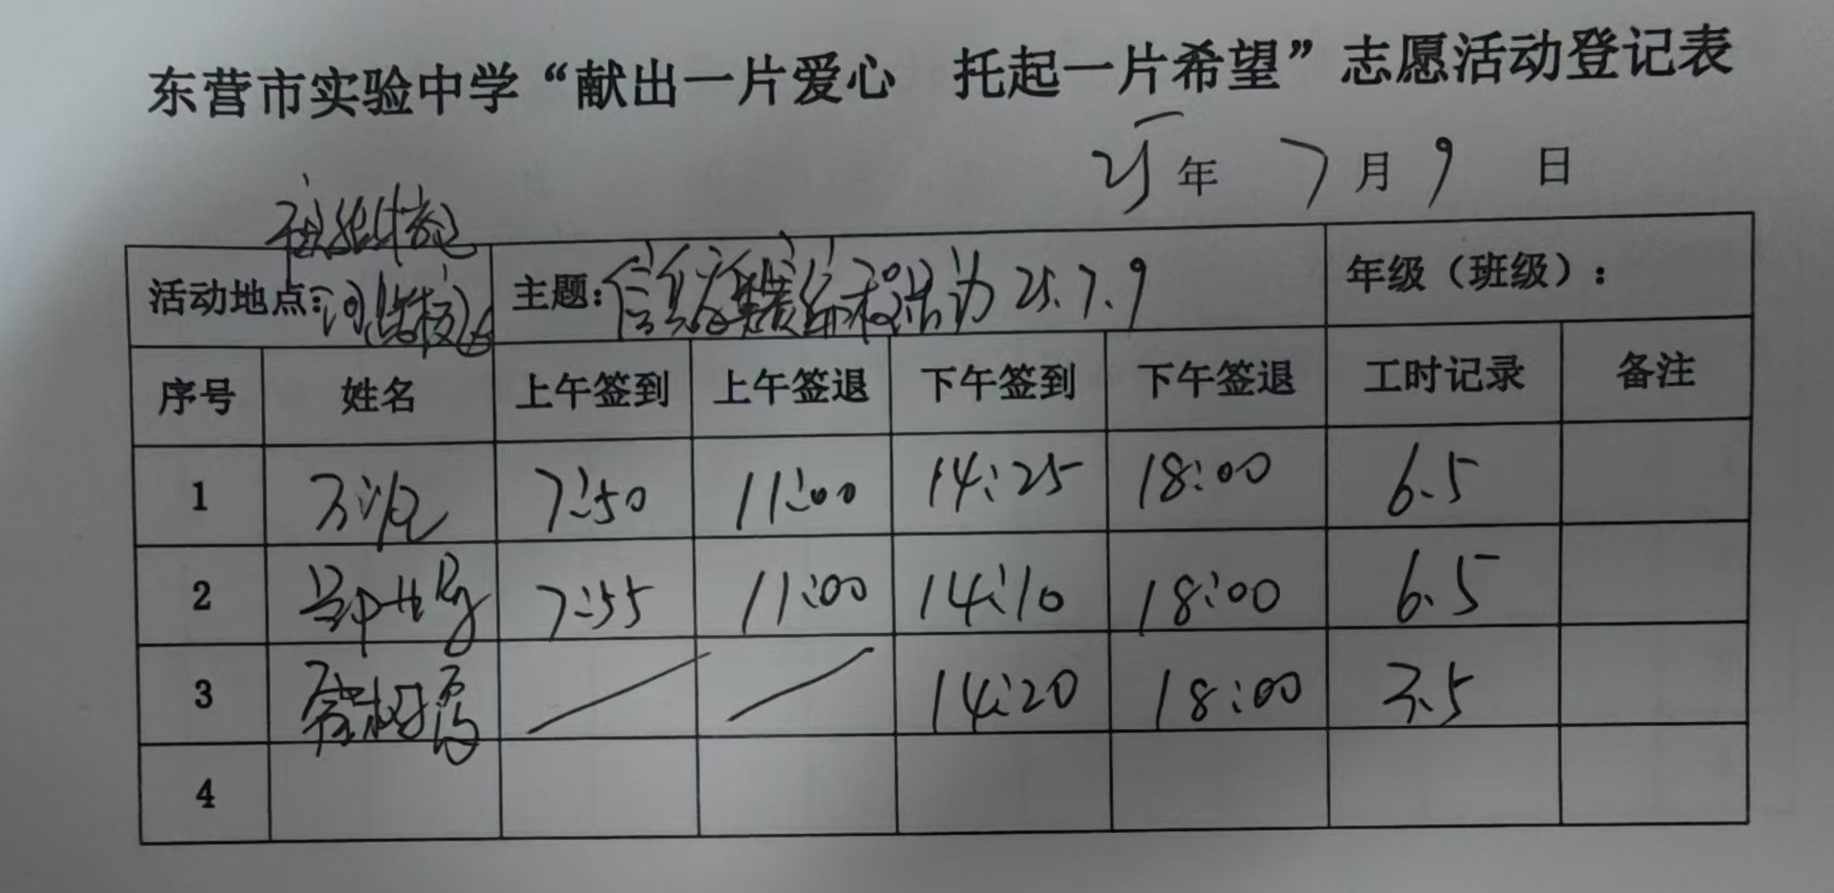 东营市实验中学“献出一片爱心 托起一片希望”志愿活动登记表
25年 7月9日
活动地点: 主题: 25.7.9 年级（班级）:
序号 姓名 上午签到 上午签退 下午签到 下午签退 工时记录 备注
1 7:50 11:00 14:25 18:00 6.5
2 7:55 11:00 14:10 18:00 6.5
3 / / 14:20 18:00 3.5
4